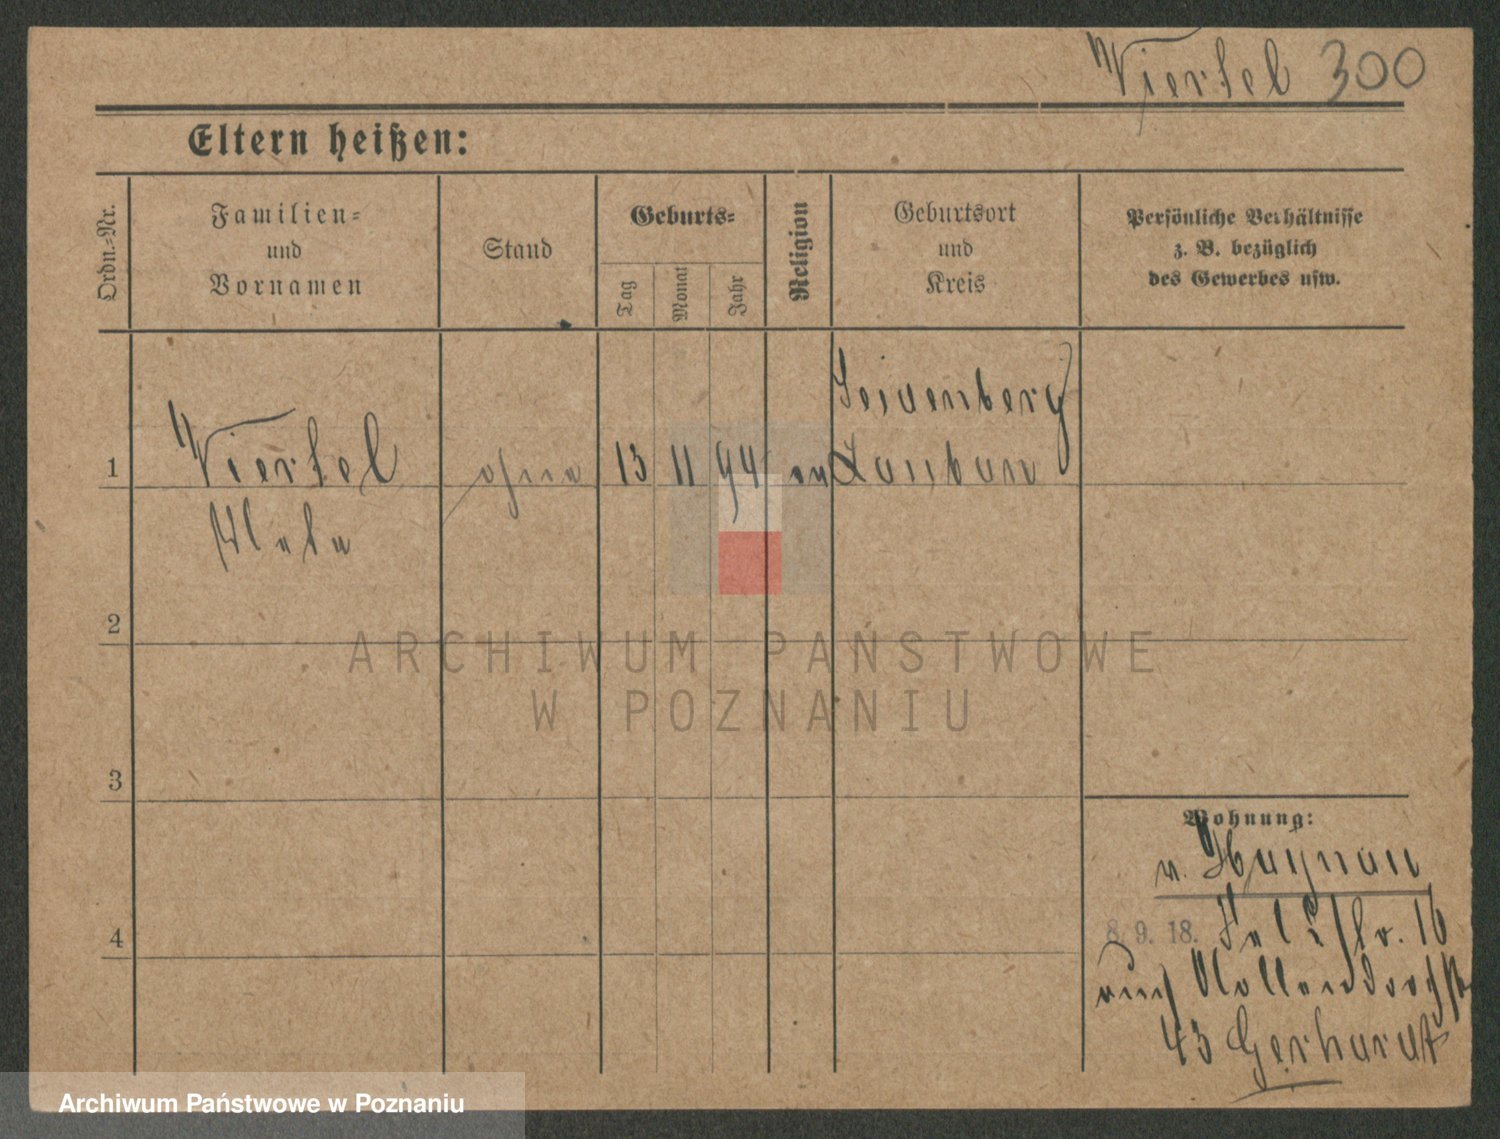 Viertel 300
Eltern heißen:
Ordn.-Nr.
Familien-
und
Vornamen
Stand
Geburts-
Tag
Monat
Jahr
Religion
Geburtsort
und
Kreis
Persönliche Verhältnisse
z. B. bezüglich
des Gewerbes usw.
Seidenberg
1 Viertel ohne 13 11 94 ev Lauban
2
3
4
Wohnung:
v. Haynau
8.9.18. 16
nach Nollendorfstr
43 Gerhardt
ARCHIWUM PAŃSTWOWE
W POZNANIU
Archiwum Państwowe w Poznaniu